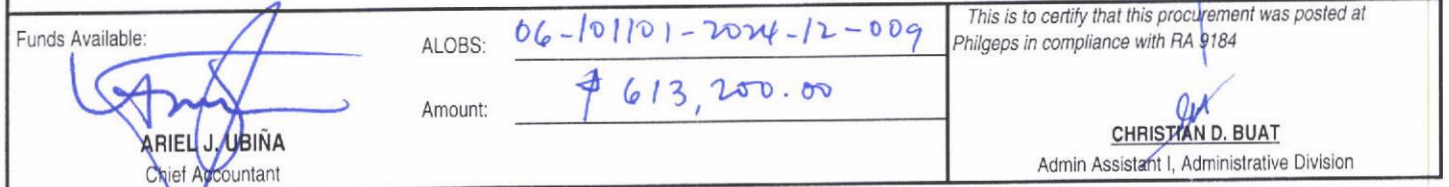 Funds Available:
ARIEL J. UBIÑA
Chief Accountant
ALOBS: 06-101101-2024-12-009
Amount: ₱ 613,200.00
This is to certify that this procurement was posted at
Philgeps in compliance with RA 9184
CHRISTIAN D. BUAT
Admin Assistant I, Administrative Division